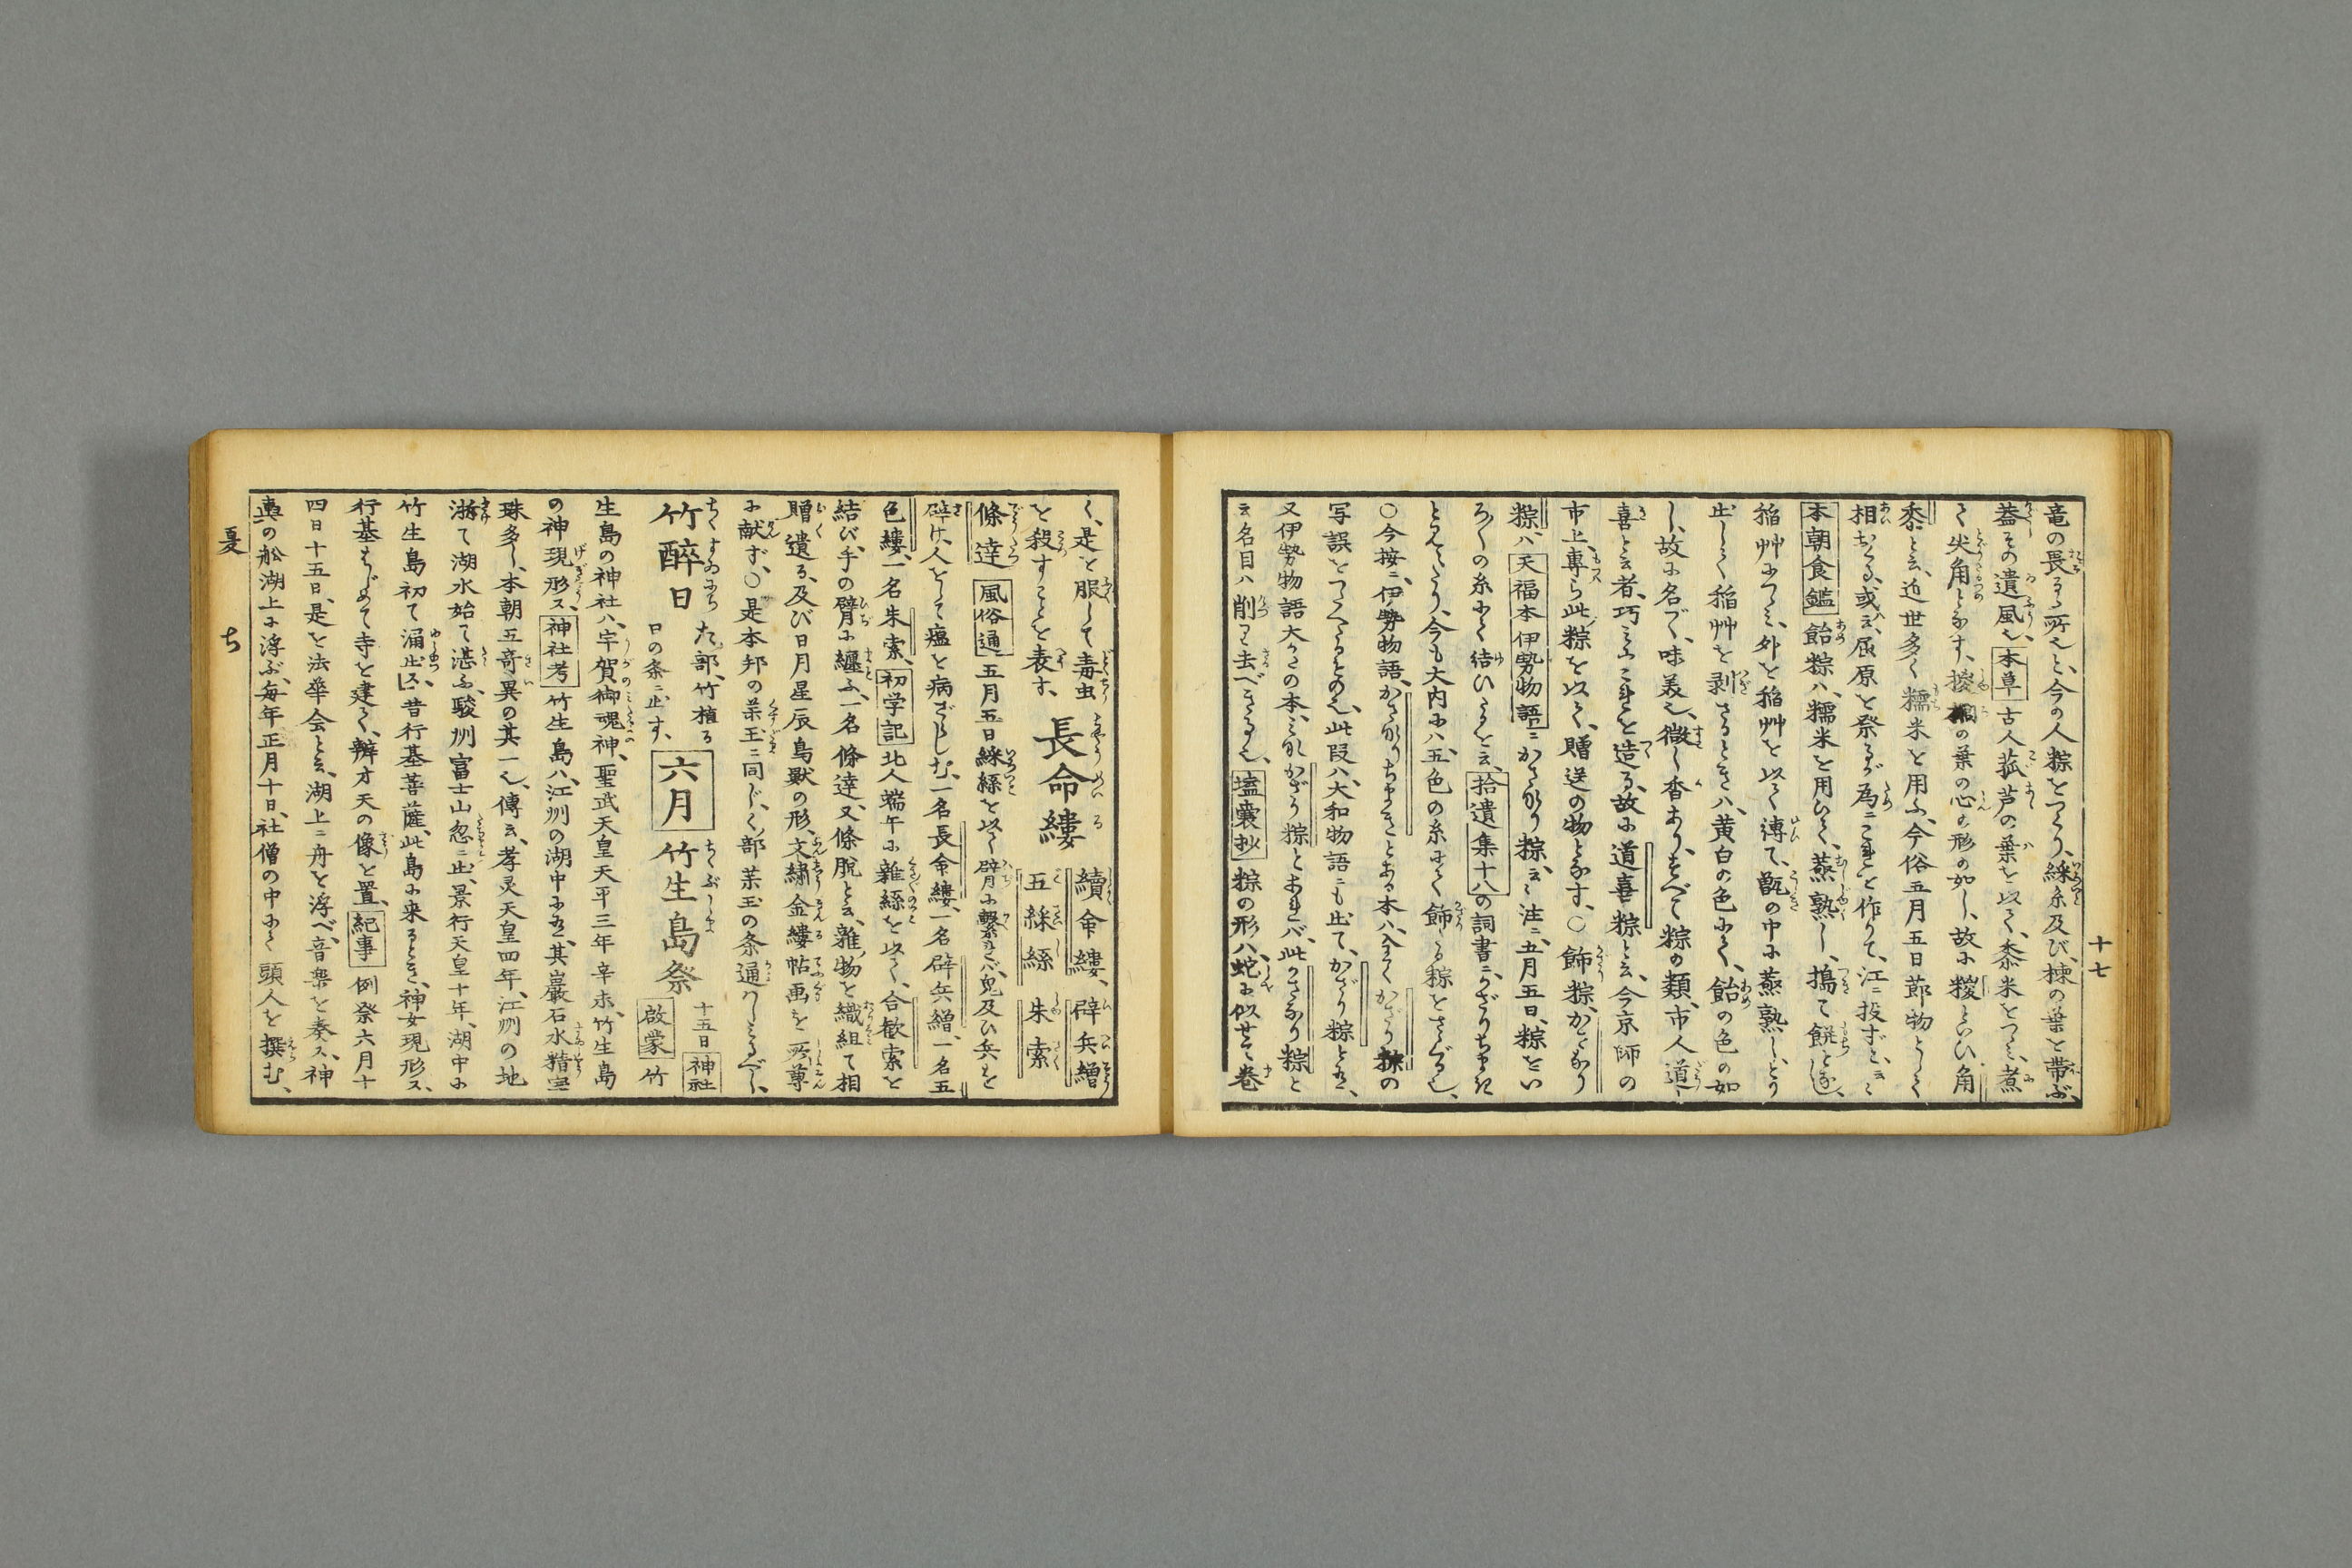 十七
竜の長るゝ所也と、今の人粽をつくり、綵糸及び、楝の葉を帯ぶ、
蓋その遺風也、本草 古人菰芦の葉を以て、黍米をつゝみ、煮
て尖角となす、椶櫚の葉の心の形の如し、故に糉といひ、角
黍と云、近世多く糯米を用ふ、今俗五月五日節物として
相おくる、或云、屈原を祭るが為ニこれを作りて、江ニ投ずと云々
本朝食鑑 飴粽ハ、糯米を用ひて、蒸熟し、搗て餅と
稲艸につゝみ、外を稲艸を以て縛て、甑の中に蒸熟し、とり
出して稲艸を剥さるときハ、黄白の色にて、飴の色の如
し、故に名づく、味美也、微し香あり、すべて粽の類、市人道
喜と云者、巧ミにこれを造る、故に道喜粽と云、今京師の
市上、専ら此粽を以て、贈送の物となす、○飾粽、かざり
粽ハ、天福本伊勢物語ニかさなり粽、云々注ニ、五月五日、粽をい
ろ〳〵の糸にて結ひたるを云、拾遺集十八の詞書ニ、かざりちまき
とみえたり、今も大内にハ五色の糸にて飾たる粽をさゝぐる也、
○今按ニ、伊勢物語、かさなりちまきとある本ハ、全くかざり粽の
写誤をつたへたるもの也、此段ハ、大和物語ニも出て、かざり粽とあり、
又伊勢物語大かたの本、ミなかざり粽とあれバ、此かさなり粽と
云名目ハ削り去べきなる也、壒嚢抄 粽の形ハ、蛇に似せて巻
く、是を服して毒虫
を殺すことを表す、
長命縷
續命縷、辟兵繒
五綵絲 朱索
條達 風俗通 五月五日綵絲を以て臂に繋れバ、鬼及ひ兵を
辟け、人をして瘟を病ざらしむ、一名長命縷、一名辟兵繒、一名五
色縷、一名朱索、初学記 北人端午に雜絲を以て、合歓索を
結び、手の臂に纏ふ、一名條達、又條脱と云、雜物を織組て相
贈遺る、及び日月星辰鳥獣の形、文繍金縷帖画を所尊
に献ず、○是本邦の茱玉ニ同じ、く部茱玉の条通ハしみるべし、
竹醉日 た部、竹植る
日の条ニ出す、
六月
竹生島祭 十五日 神社
啓蒙 竹
生島の神社ハ、宇賀御魂神、聖武天皇天平三年辛未、竹生島
の神現形ス、神社考 竹生島ハ、江州の湖中にあり、其巖石水精宝
珠多し、本朝五竒異の其一也、傳云、孝灵天皇四年、江州の地
拆て湖水始て湛ふ、駿州富士山忽ニ出、景行天皇十年、湖中に
竹生島初て涌出ス、昔行基菩薩、此島に来るとき、神女現形ス、
行基はじめて寺を建て、辨才天の像を置、紀事 例祭六月十
四日十五日、是を法華会と云、湖上ニ舟を浮べ、音樂を奏ス、神
輿の舩湖上に浮ぶ、毎年正月十日、社僧の中にて頭人を撰む、
夏 ち